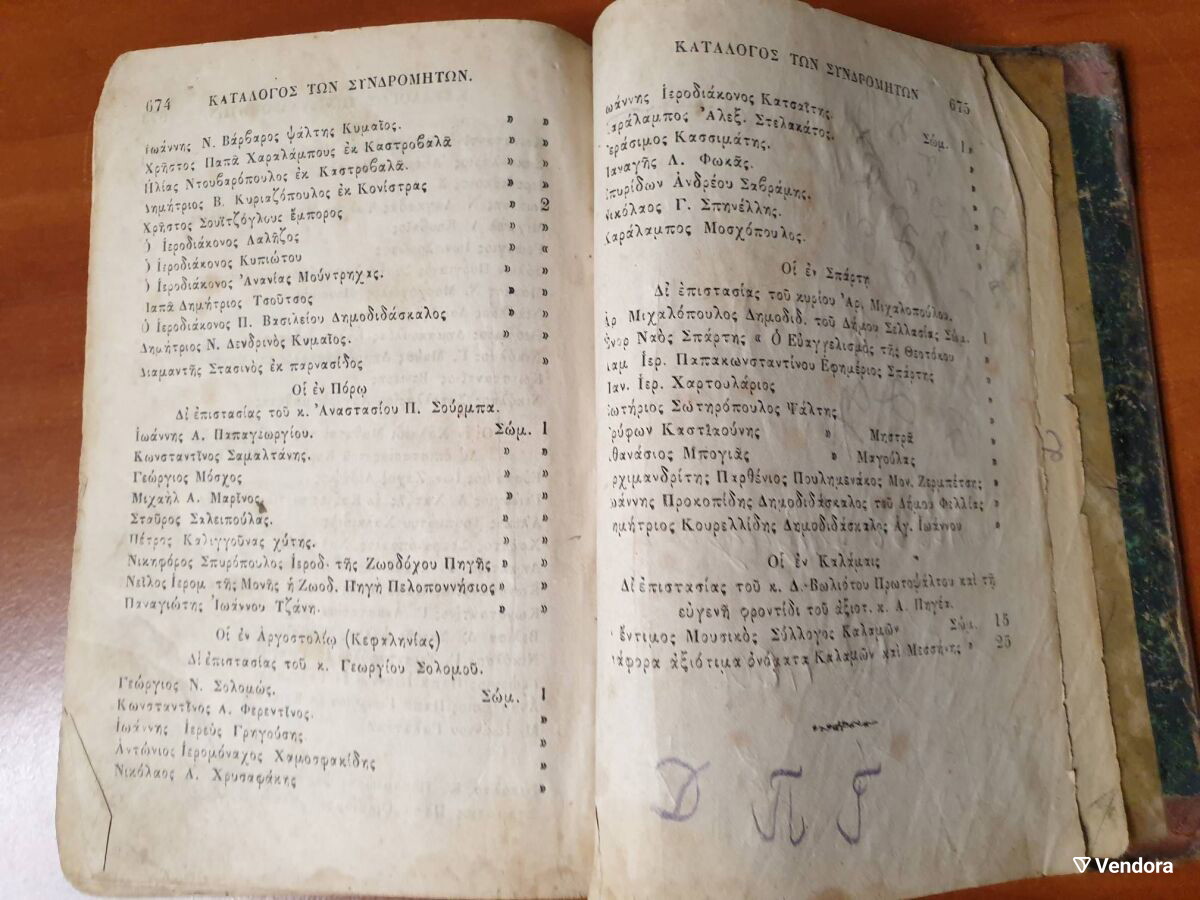 674 ΚΑΤΑΛΟΓΟΣ ΤΩΝ ΣΥΝΔΡΟΜΗΤΩΝ.
Ἰωάννης Ν. Βάρβαρος ψάλτης Κυμαῖος. » »
Χρῆστος Παπᾶ Χαραλάμπους ἐκ Καστροβαλᾶ » »
Ἠλίας Ντουβαρόπουλος ἐκ Καστροβαλᾶ. » »
Δημήτριος Β. Κυριαζόπουλος ἐκ Κονίστρας » »
Χρῆστος Σουϊτζόγλους ἔμπορος » 2
Ὁ Ἱεροδιάκονος Λαλῆζος » »
Ὁ Ἱεροδιάκονος Κυπιώτου » «
Ὁ Ἱεροδιάκονος Ἀνανίας Μούντρηχας. » »
Παπᾶ Δημήτριος Τσοῦτσος » »
Ὁ Ἱεροδιάκονος Π. Βασιλείου Δημοδιδάσκαλος » »
Δημήτριος Ν. Δενδρινὸς Κυμαῖος. » »
Διαμαντῆς Στασινὸς ἐκ παρνασίδος » »
Οἱ ἐν Πόρῳ
Δι' ἐπιστασίας τοῦ κ. Ἀναστασίου Π. Σούρμπα.
Ἰωάννης Α. Παπαγεωργίου. Σώμ. 1
Κωνσταντῖνος Σαμαλτάνης. » »
Γεώργιος Μόσχος » »
Μιχαὴλ Α. Μαρῖνος » »
Σταῦρος Σαλειπούλας. » »
Πέτρος Καλιγγοῦνας χύτης. » »
Νικηφόρος Σπυρόπουλος Ἱεροδ. τῆς Ζωοδόχου Πηγῆς » »
Νεῖλος Ἱερομ τῆς Μονῆς ἡ Ζωοδ. Πηγὴ Πελοποννήσιος » »
Παναγιώτης Ἰωάννου Τζάνη. » »
Οἱ ἐν Ἀργοστολίῳ (Κεφαληνίας)
Δι' ἐπιστασίας τοῦ κ. Γεωργίου Σολομοῦ.
Γεώργιος Ν. Σολομώς. Σώμ. 1
Κωνσταντῖνος Α. Φερεντῖνος. »
Ἰωάννης Ἱερεὺς Γρηγούσης »
Ἀντώνιος Ἱερομόναχος Χαμοσφακίδης »
Νικόλαος Α. Χρυσαφάκης »
ΚΑΤΑΛΟΓΟΣ ΤΩΝ ΣΥΝΔΡΟΜΗΤΩΝ 675
ωάννης Ἱεροδιάκονος Κατσαΐτης.
αράλαμπος Ἀλεξ. Στελακάτος. Σώμ. 1 »
εράσιμος Κασσιμάτης. »
αναγῆς Λ. Φωκᾶς. »
πυρίδων Ἀνδρέου Σαβράμης. »
ικόλαος Γ. Σπηνέλλης. »
αράλαμπος Μοσχόπουλος. »
Οἱ ἐν Σπάρτῃ
Δι' ἐπιστασίας τοῦ κυρίου Ἀρ. Μιχαλοπούλου.
Ἀρ Μιχαλόπουλος Δημοδιδ. τοῦ Δήμου Σελλασίας Σώμ. 1
Ναὸς Σπάρτης « Ὁ Εὐαγγελισμὸς τῆς Θεοτόκου »
Ἱερ. Παπακωνσταντίνου Ἐφημέριος Σπάρτης »
αν. Ἱερ. Χαρτουλάριος »
ωτήριος Σωτηρόπουλος Ψάλτης »
ρύφων Καστιαούνης » Μηστρᾶ »
θανάσιος Μπογιᾶς » Μαγούλας »
ρχιμανδρίτης Παρθένιος Πουλημενάκος Μον. Ζερμπίτσης »
ωάννης Προκοπίδης Δημοδιδάσκαλος τοῦ Δήμου Φελλίας »
ημήτριος Κουρελλίδης Δημοδιδάσκαλος Ἁγ. Ἰωάννου »
Οἱ ἐν Καλάμαις
Δι' ἐπιστασίας τοῦ κ. Δ. Βωλιότου Πρωτοψάλτου καὶ τῇ
εὐγενῆ φροντίδι τοῦ ἀξιοτ. κ. Α. Πηγέα.
ἔντιμος Μουσικὸς Σύλλογος Καλαμῶν Σώμ. 15
ιάφορα ἀξιότιμα ὀνόματα Καλαμῶν καὶ Μεσσήνης » 25
Δ Π Γ
Vendora